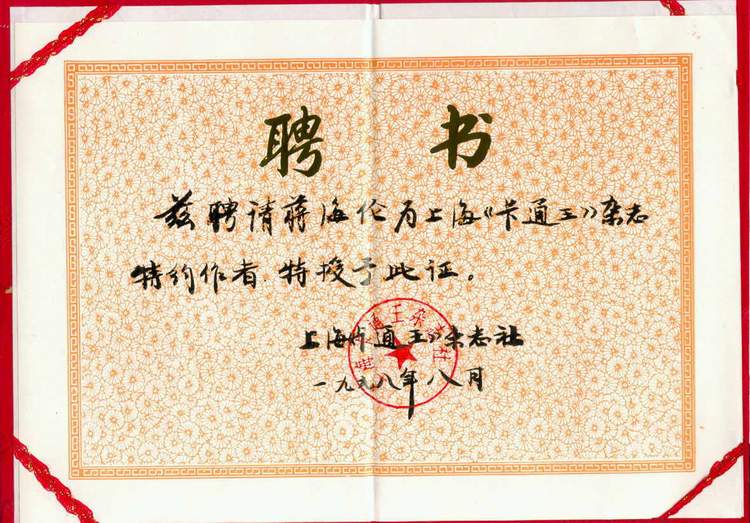 聘书
兹聘请蒋海伦为上海《卡通王》杂志
特约作者 特授予此证。
上海《卡通王》杂志社
一九九八年八月
卡通王杂志社